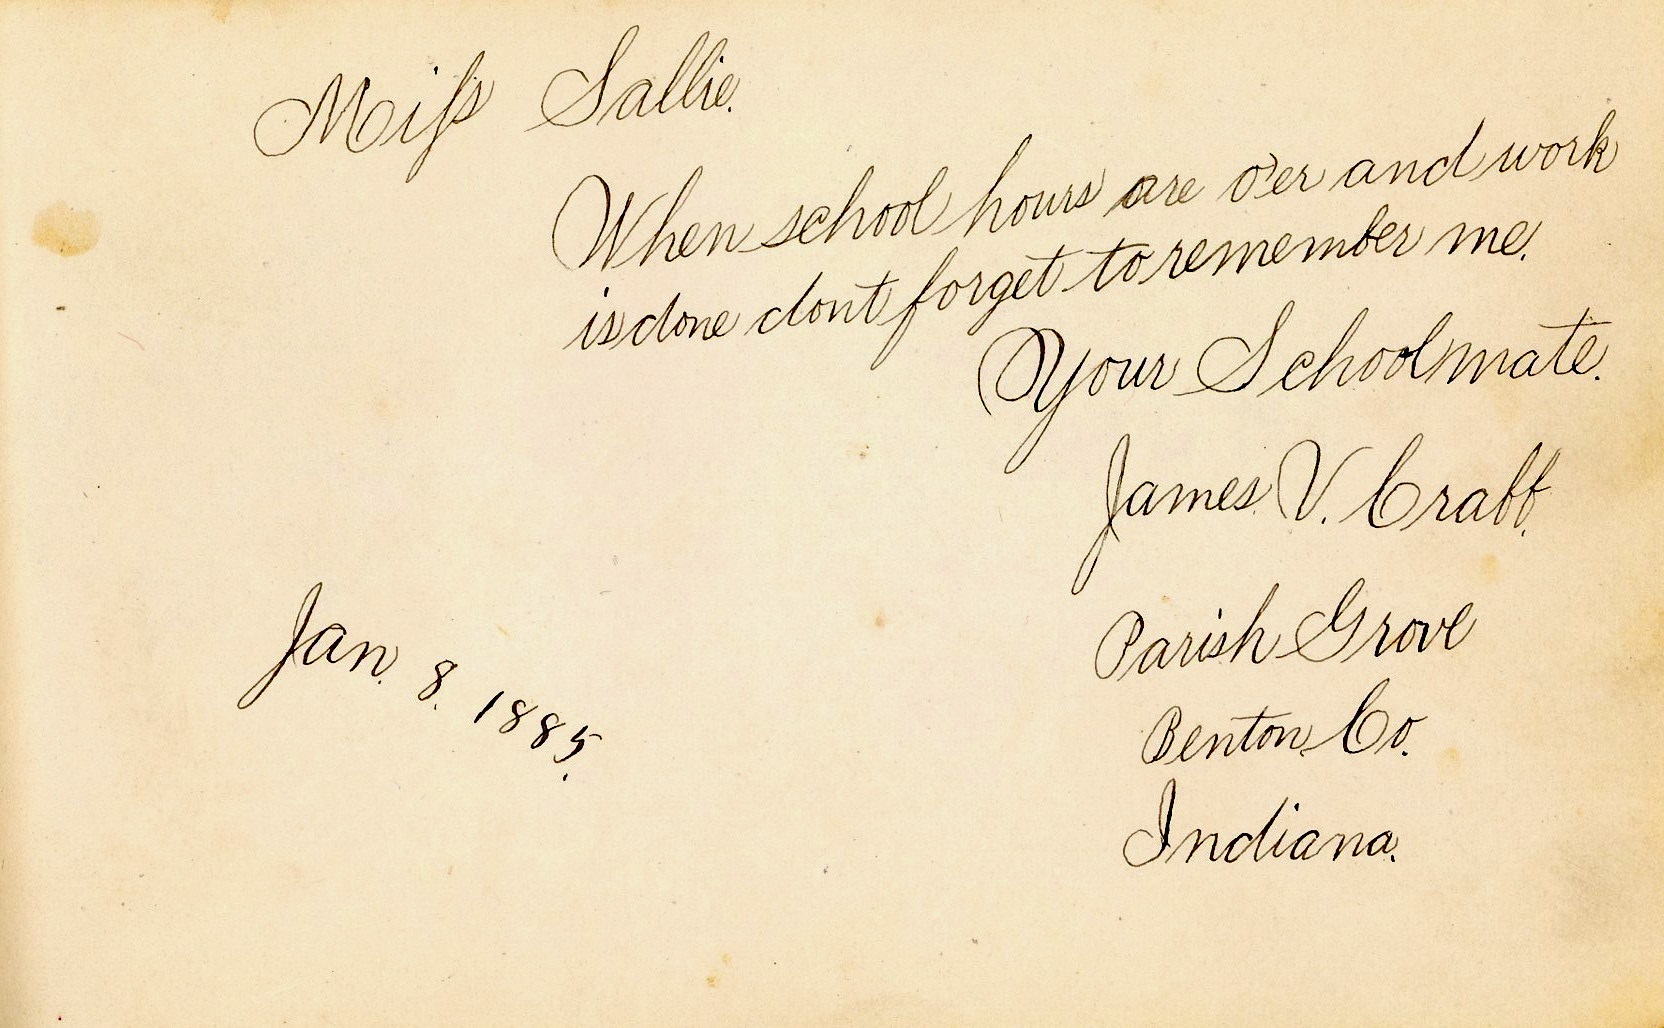 Miſs Sallie.
When school hours are o'er and work
is done dont forget to remember me.
Your Schoolmate.
James V. Crabb.
Parish Grove
Jan. 8. 1885.
Benton Co.
Indiana.